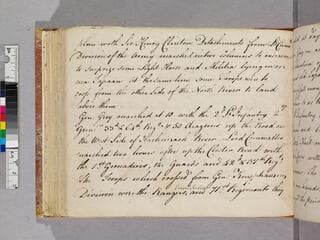 plan with Sir Henry Clinton Detachments from
Division of the Army marched in two columns to endeavor
to surprize some Light Horse and Militia lying in or
near Tapaan at the same time some Troops were to
cross from the other side of the North River to land
above them
Gen. Grey marched at 10 with the 2d Lt Infantry 2d
Gren. 33d & 64th Regts & 50 Dragoons up the Road on
the West Side of Hackinsack River. Lord Cornwallis
marched two hours after up the Road with
the 1st Grenadiers, the Guards and 42d & 37th Regts
The Troops which crossed from Gen. Knyphausens
Division were the Rangers, and 71st Regiment they